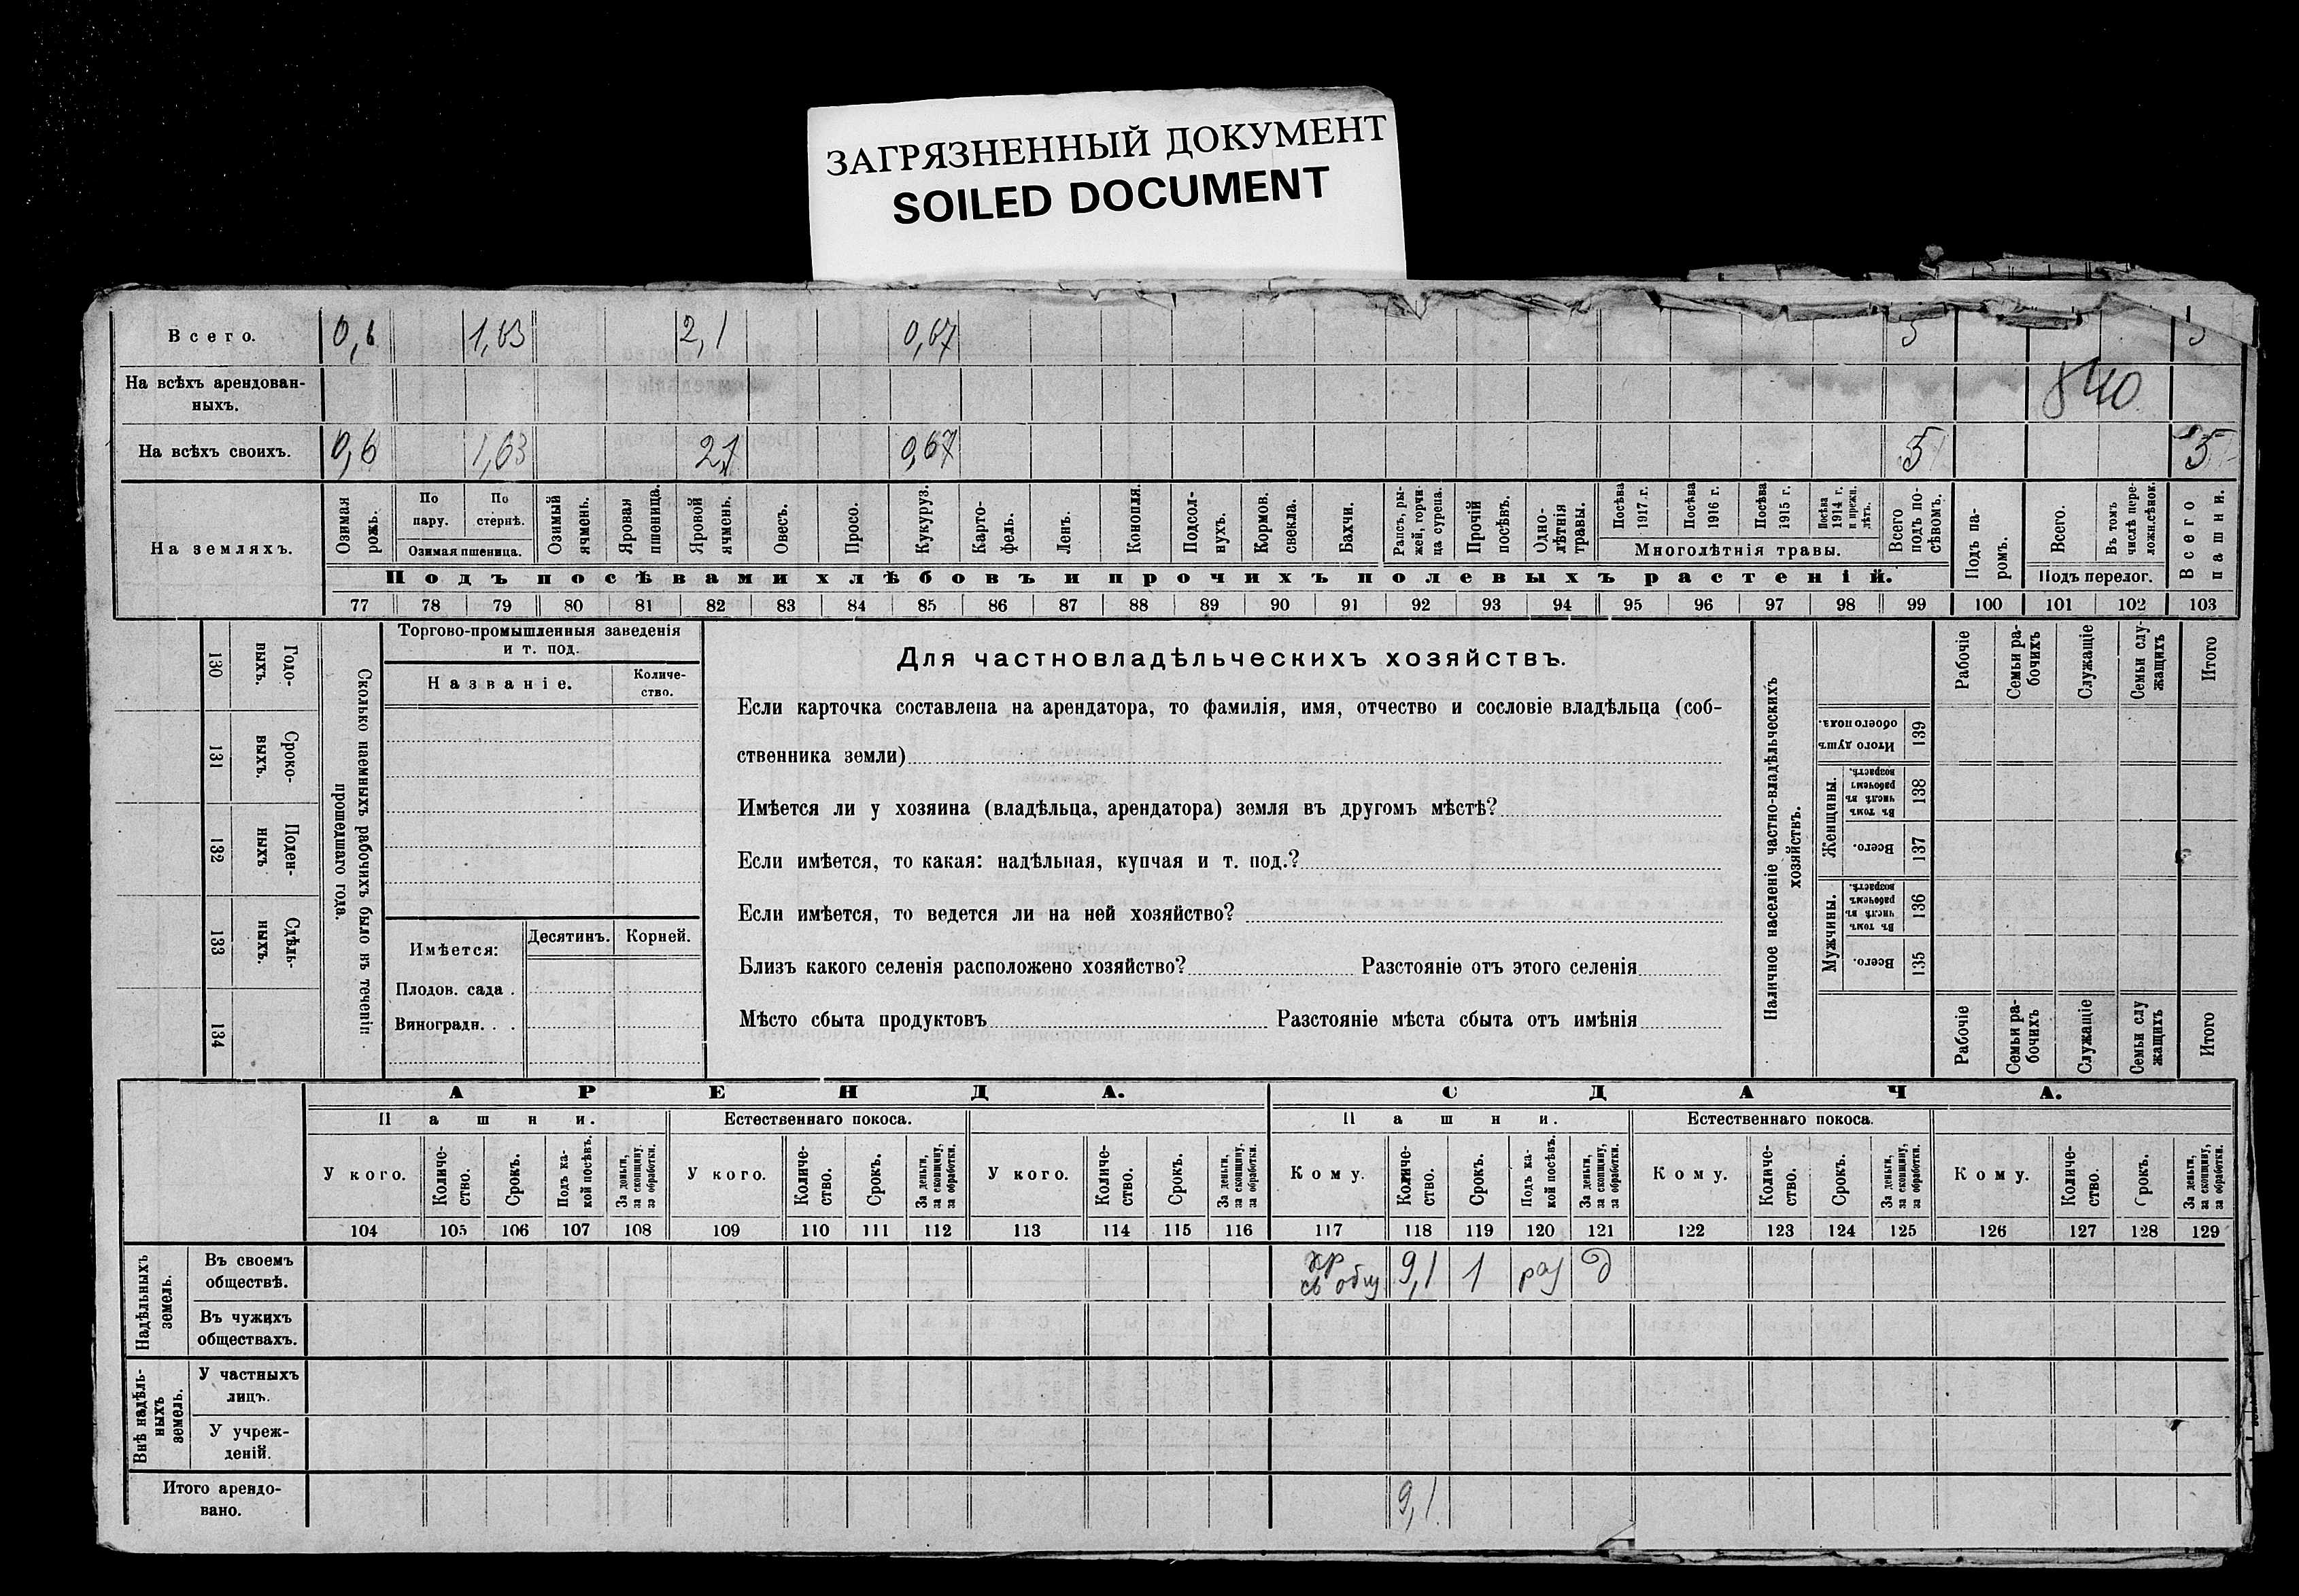 ЗАГРЯЗНЕННЫЙ ДОКУМЕНТ
SOILED DOCUMENT
Всего. 0,6 1,63 2,1 0,67 5 5
На всѣхъ арендован-
ныхъ. 840
На всѣхъ своихъ. 0,6 1,63 2,1 0,67 5 5
На земляхъ.
Озимая рожь.
По пару.
По стернѣ.
Озимая пшеница.
Озимый ячмень.
Яровая пшеница.
Яровой ячмень.
Овесъ.
Просо.
Кукуруз.
Карто-
фель.
Ленъ.
Конопля.
Подсол-
нухъ.
Кормов. свекла.
Бахчи.
Рапсъ, ры-
жей, горчи-
ца сурепа.
Прочій посѣвъ.
Одно-
лѣтнія травы.
Посѣва 1917 г.
Посѣва 1916 г.
Посѣва 1915 г.
Посѣва 1914 г. и прежн. лѣтъ.
Многолѣтнія травы.
Всего подъ по-
сѣвомъ.
Подъ па-
ромъ.
Всего.
Въ томъ числѣ пере-
ложн.сѣнок.
Подъ перелог.
Всего пашни.
Подъ посѣвами хлѣбовъ и прочихъ полевыхъ растеній.
77 78 79 80 81 82 83 84 85 86 87 88 89 90 91 92 93 94 95 96 97 98 99 100 101 102 103
130 Годо-
выхъ.
131 Сроко-
выхъ.
132 Поден-
ныхъ
133 Сдѣль-
ныхъ.
134
Сколько наемныхъ рабочихъ было въ теченіи
прошедшаго года.
Торгово-промышленныя заведенія
и т. под.
Названіе.
Количе-
ство.
Имѣется:
Десятинъ. Корней.
Плодов. сада .
Виноградн. . .
Для частновладѣльческихъ хозяйствъ.
Если карточка составлена на арендатора, то фамилія, имя, отчество и сословіе владѣльца (соб-
ственника земли)
Имѣется ли у хозяина (владѣльца, арендатора) земля въ другомъ мѣстѣ?
Если имѣется, то какая: надѣльная, купчая и т. под.?
Если имѣется, то ведется ли на ней хозяйство?
Близъ какого селенія расположено хозяйство? Разстояніе отъ этого селенія
Мѣсто сбыта продуктовъ Разстояніе мѣста сбыта отъ имѣнія
Наличное населеніе частно-владѣльческихъ
хозяйствъ.
Рабочіе
Семьи ра-
бочихъ
Служащіе
Семьи слу-
жащихъ
Итого
Итого душъ обоего пола. 139
Женщины.
Въ томъ числѣ въ рабочемъ возрастѣ. 138
Всего. 137
Мужчины.
Въ томъ числѣ въ рабочемъ возрастѣ. 136
Всего. 135
Рабочіе
Семьи ра-
бочихъ
Служащіе
Семьи слу
жащихъ
Итого
АРЕНДА. СДАЧА.
Пашни. Естественнаго покоса. Пашни. Естественнаго покоса.
У кого.
Количе-
ство.
Срокъ.
Подъ ка-
кой посѣвъ.
За деньги, за скопщину, за обработки.
У кого.
Количе-
ство.
Срокъ.
За деньги, за скопщину, за обработки.
У кого.
Количе-
ство.
Срокъ.
За деньги, за скопщину, за обработки.
Кому.
Количе-
ство.
Срокъ.
Подъ ка-
кой посѣвъ.
За деньги, за скопщину, за обработки.
Кому.
Количе-
ство.
Срокъ.
За деньги, за скопщину, за обработки.
Кому.
Количе-
ство.
Срокъ.
За деньги, за скопщину, за обработки.
104 105 106 107 108 109 110 111 112 113 114 115 116 117 118 119 120 121 122 123 124 125 126 127 128 129
Надѣльныхъ земель.
Въ своемъ
обществѣ. 9,1 1 д
Въ чужихъ
обществахъ.
Внѣ надѣль-
ныхъ земель.
У частныхъ
лицъ.
У учреж-
деній.
Итого арендо-
вано. 9,1